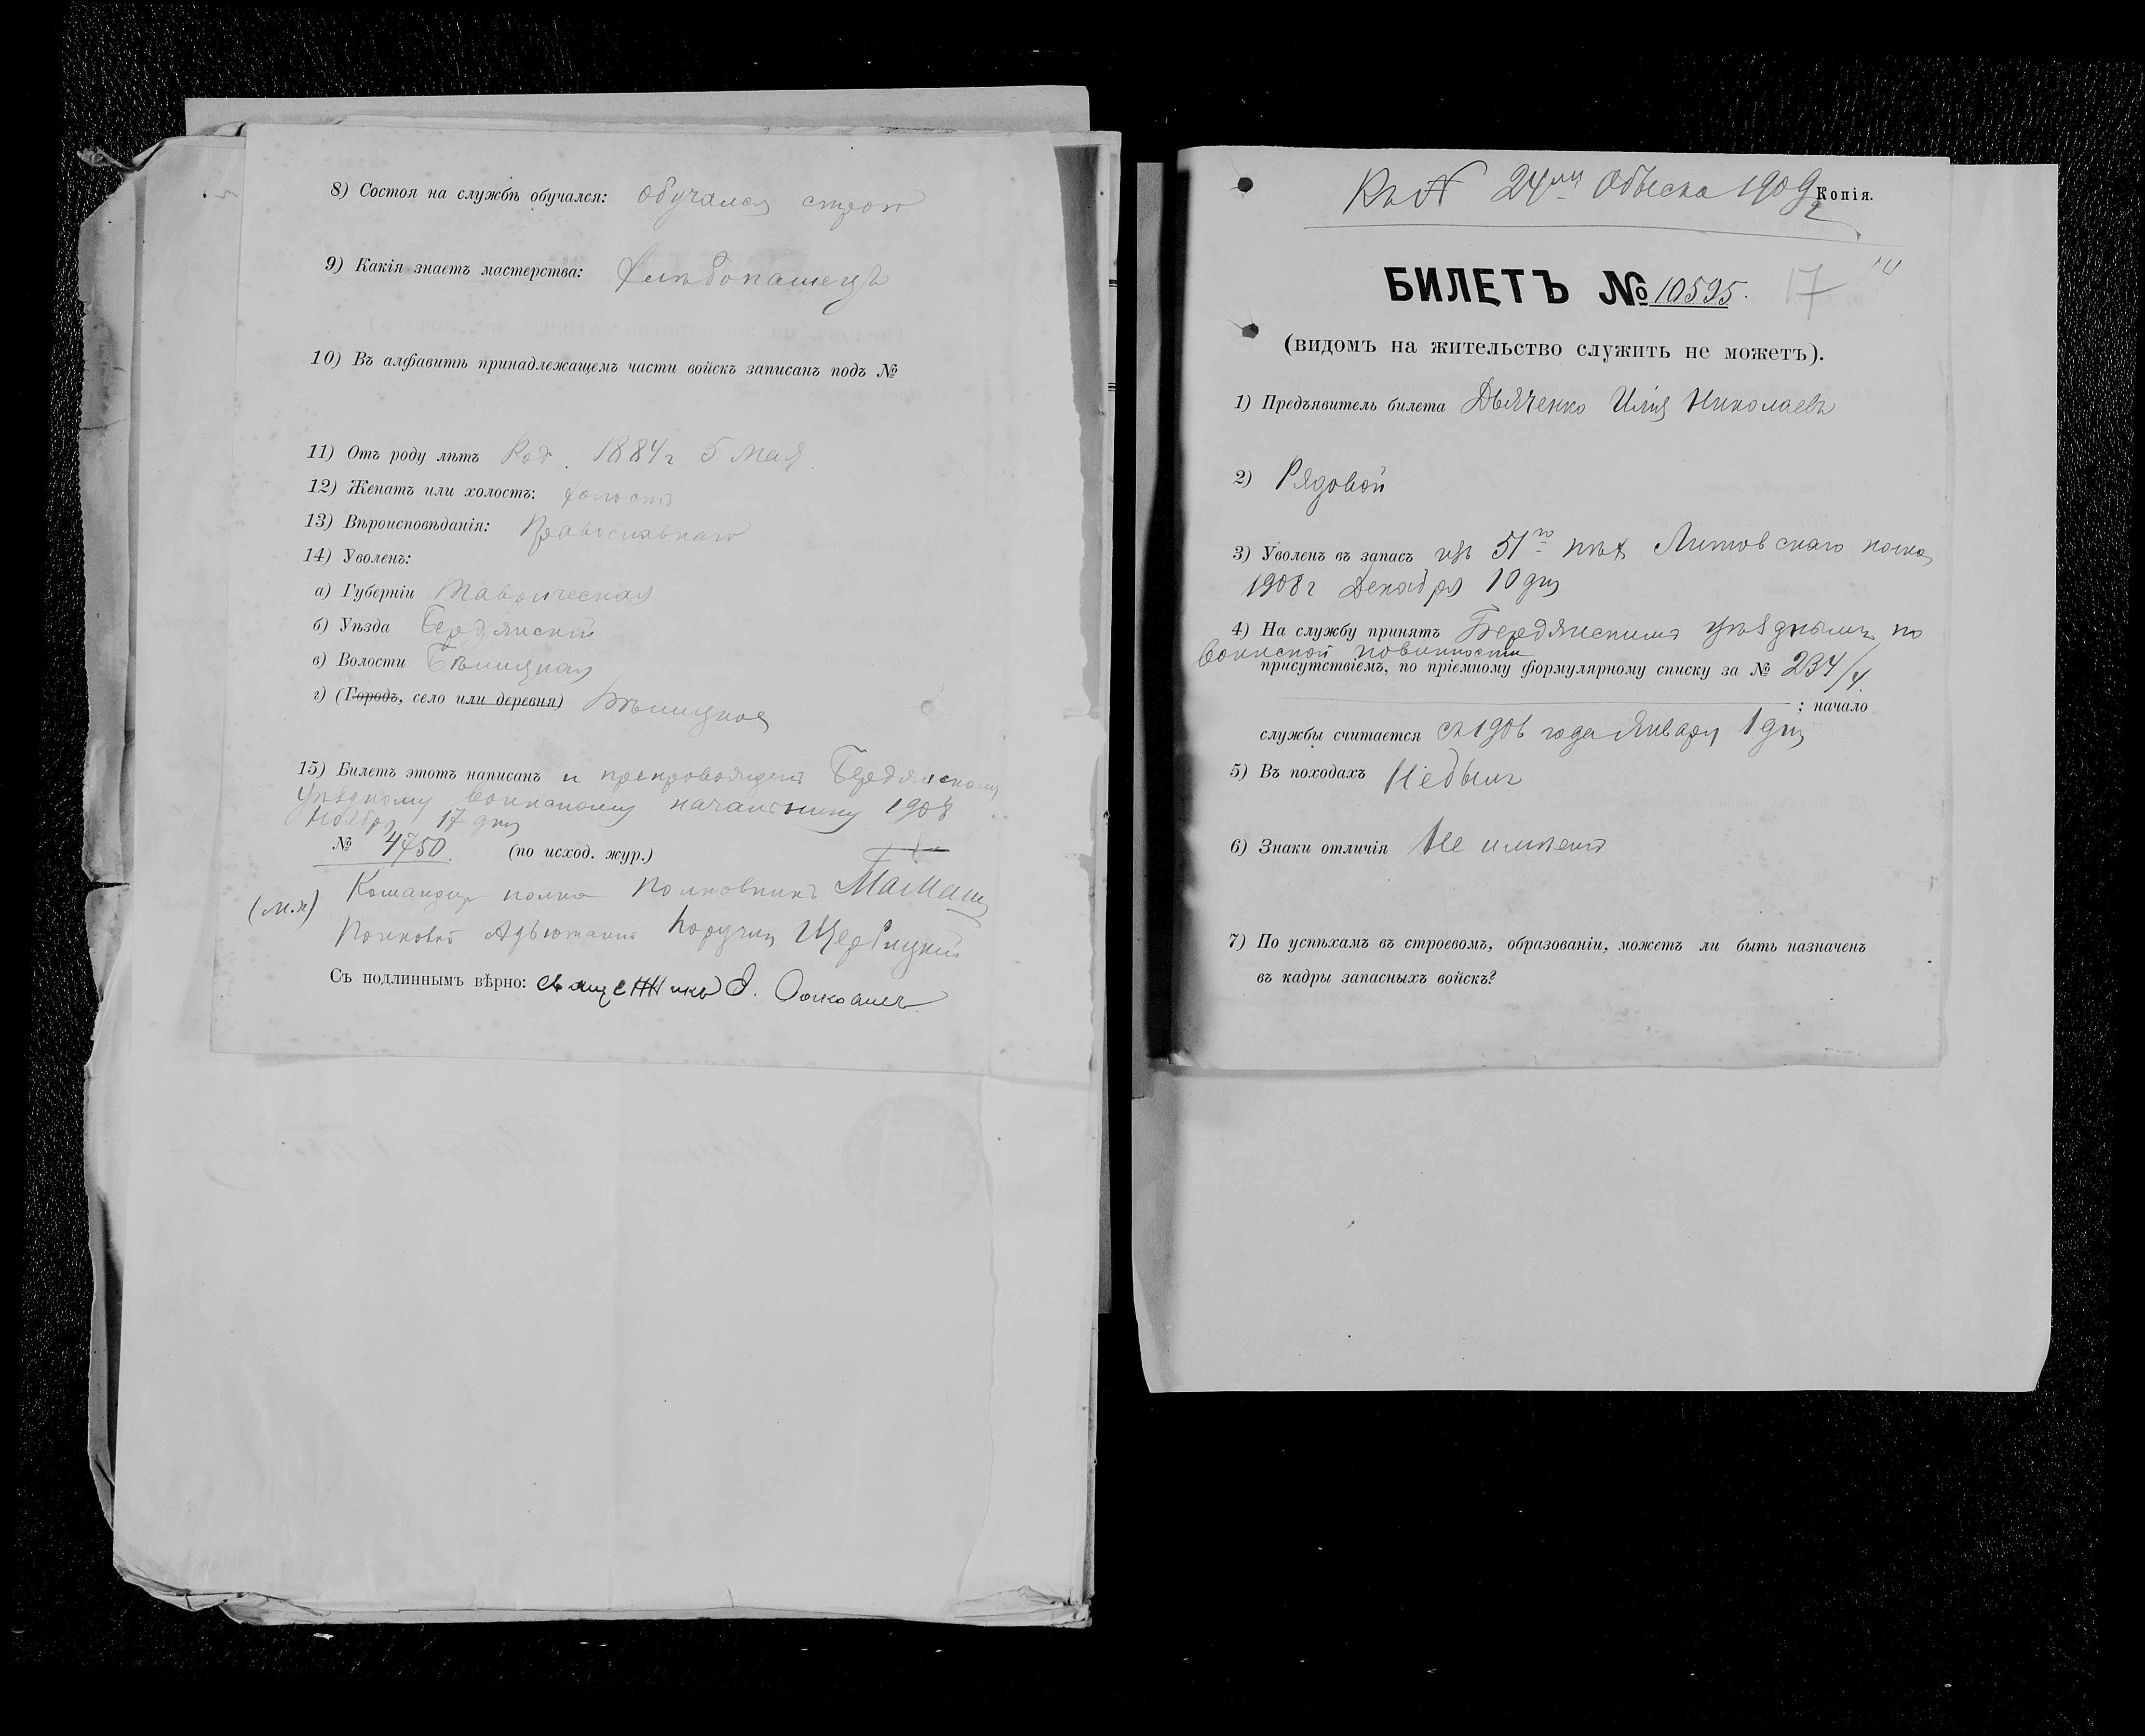 8) Состоя на службѣ обучался: обучался строю
9) Какія знаетъ мастерства: хлѣбопашецъ
10) Въ алфавитѣ принадлежащемъ части войскъ записанъ подъ №
11) Отъ роду лѣтъ Род. 1884 г 5 Мая.
12) Женатъ или холостъ: холостъ
13) Вѣроисповѣданія: Православнаго
14) Уволенъ:
а) Губерніи Таврическая
б) Уѣзда Бердянскій
в) Волости
г) (Городъ, село или деревня)
15) Билетъ этотъ написанъ и препровожденъ Бердянскому
Уѣздному Воинскому начальнику 1908
Ноября 17 дня
№ 4750. (по исход. жур.)
(М.п.) Командиръ полка Полковникъ
Полковой Адъютантъ Поручикъ Щербицкій
Съ подлиннымъ вѣрно: священникъ
Къ № 24му Обыска 1909 г
Копія.
БИЛЕТЪ № 10595. 17 14
(видомъ на жительство служить не можетъ).
1) Предъявитель билета Дьяченко Илія Николаевъ
2) Рядовой
3) Уволенъ въ запасъ изъ 51го пѣх Литовскаго полка
1908 г Декабря 10 дня
4) На службу принятъ Бердянскимъ уѣзднымъ по
воинской повинности
присутствіемъ, по пріемному формулярному списку за № 234/4.
; начало
службы считается съ 1906 года Января 1 дня
5) Въ походахъ Не былъ
6) Знаки отличія Не имѣетъ
7) По успѣхамъ въ строевомъ, образованіи, можетъ ли быть назначенъ
въ кадры запасныхъ войскъ?